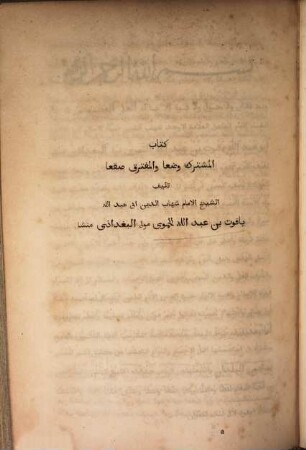 كتاب
المشترك وضعا والمفترق صقعا
تاليف
الشيخ الامام شهاب الدين ابى عبد الله
ياقوت بن عبد الله الحموى مول البغدادى منشا